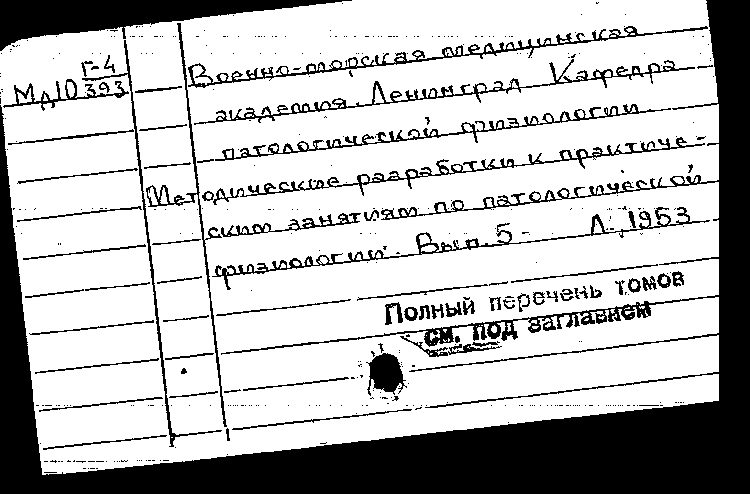 Г-4
Мд10 393
Военно-морская медицинская
академия. Ленинград. Кафедра
патологической физиологии.
Методические разработки к практиче-
ским занятиям по патологической
физиологии. Вып. 5- Л., 1953
Полный перечень томов
см. под заглавием